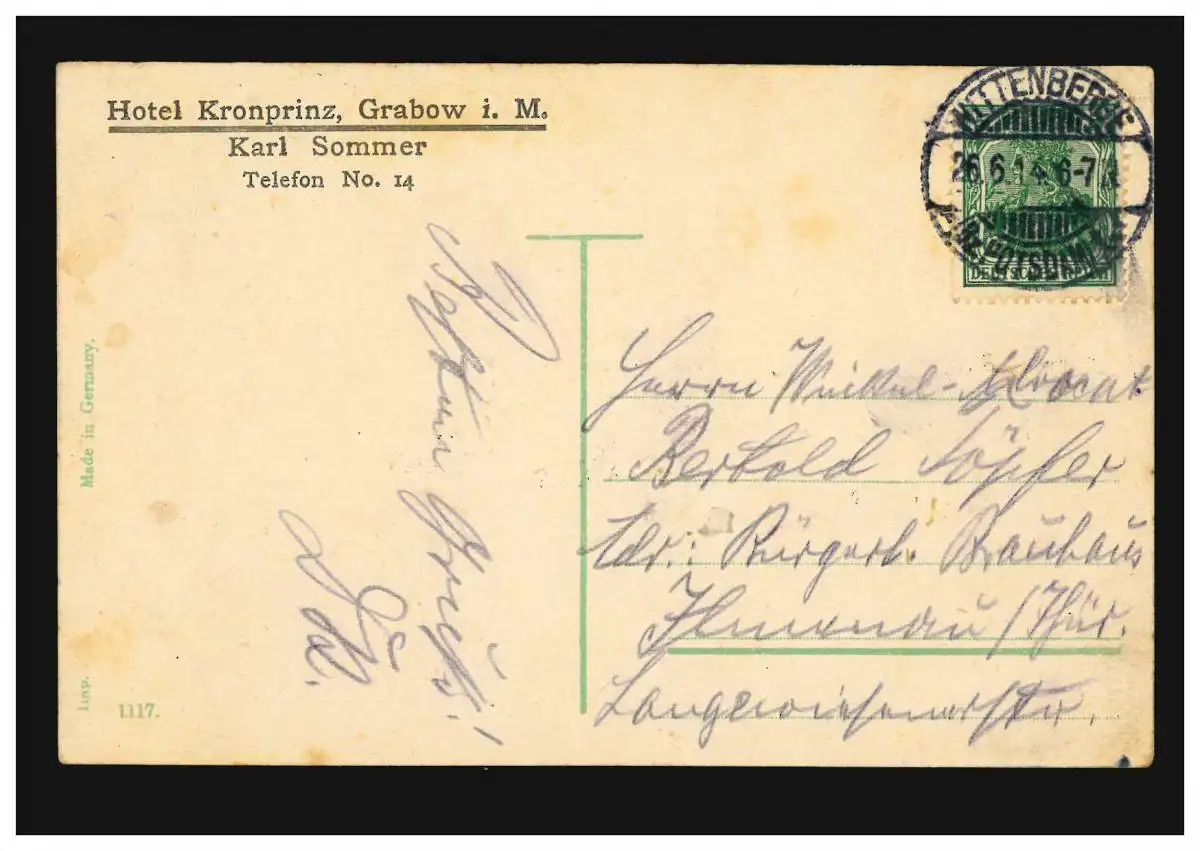 Hotel Kronprinz, Grabow i. M.
Karl Sommer
Telefon No. 14
WITTENBERGE
26.6.14 6-7
BZ. POTSDAM
DEUTSCHES REICH
Besten Gruß!
Herrn Winkel-Advocat
Bertold Töpfer
Adr.: Bürgerl. Brauhaus
Ilmenau / Thür.
Langewiesenerstr.
Made in Germany.
Imp.
1117.